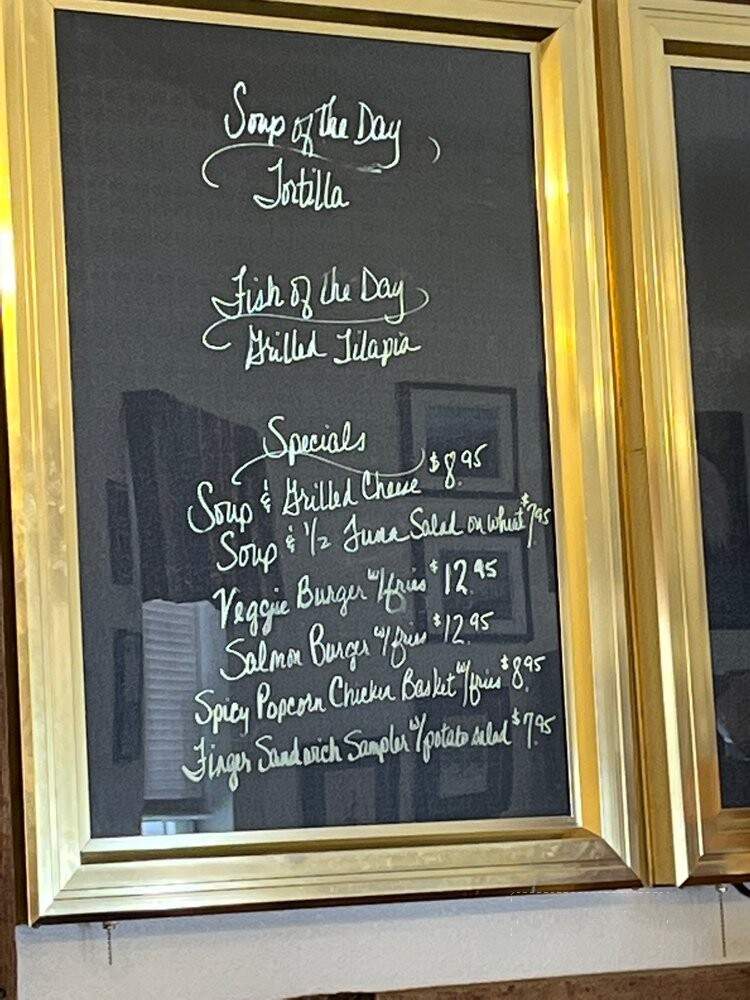 Soup of the Day
Tortilla
Fish of the Day
Grilled Tilapia
Specials
Soup & Grilled Cheese $8.95
Soup & 1/2 Tuna Salad on wheat $7.95
Veggie Burger w/fries $12.95
Salmon Burger w/fries $12.95
Spicy Popcorn Chicken Basket w/fries $8.95
Finger Sandwich Sampler w/potato salad $7.95